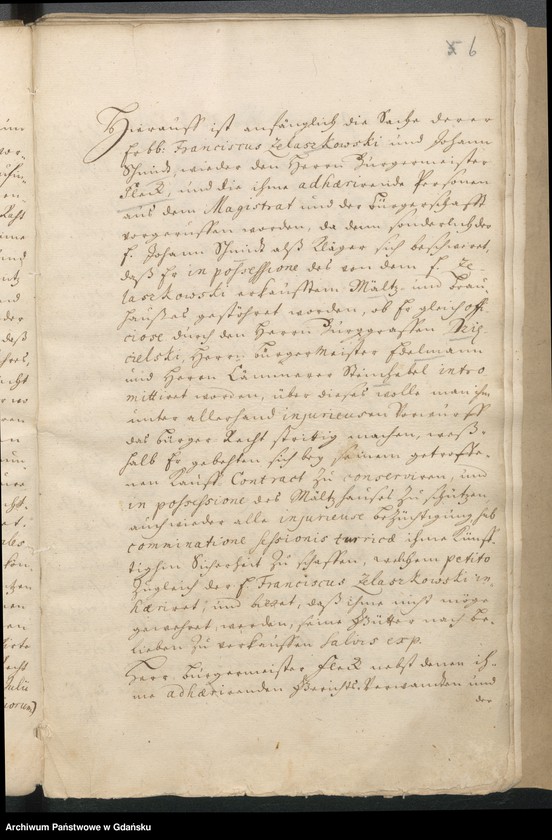 6
Hierauff ist anfänglich die Sache derer
Ehrbb: Franciscus Zelaszkowski und Johann
Schmidt, wieder den Herrn Bürgermeister
Fleck, und die ihme adhærirende Personen
aus dem Magistrat und der Bürgerschafft
vorgeruffen worden, da denn sonderlich der
E. Johann Schmidt alß Kläger sich beschweret,
daß Er in possessione des von dem E. Ze
laszkowski erkaufften Mältz- und Brau
haußes gestöhret worden, ob Er gleich offi
ciose durch den Herrn Burggraffen
cielski, Herrn Bürgermeister Edelmann
und Herrn Cämmerer intro
mittiret worden, über dieses wolle man ihm
unter allerhand injurieusen Vorwurff
das Bürger Recht strittig machen, weß-
halb Er gebehten sich bey seinem getroffe-
nen Kauff Contract zu conserviren, und
in possessione des Mältzhauses zu schützen,
auch wieder alle injurieuse Bezüchtigung sub
comminatione sessionis turricæ ihme künff-
tighin Sicherheit zu schaffen, welchem petito
zugleich der E. Franciscus Zelaszkowski in-
hæriret, und bittet, daß ihme nicht möge
gewehret werden, seine Gütter nach be-
lieben zu verkauffen salvis exp.
Herr Bürgermeister Fleck nebst denen ih-
me adhærirenden Gerichts-Verwandten und
der
Archiwum Państwowe w Gdańsku